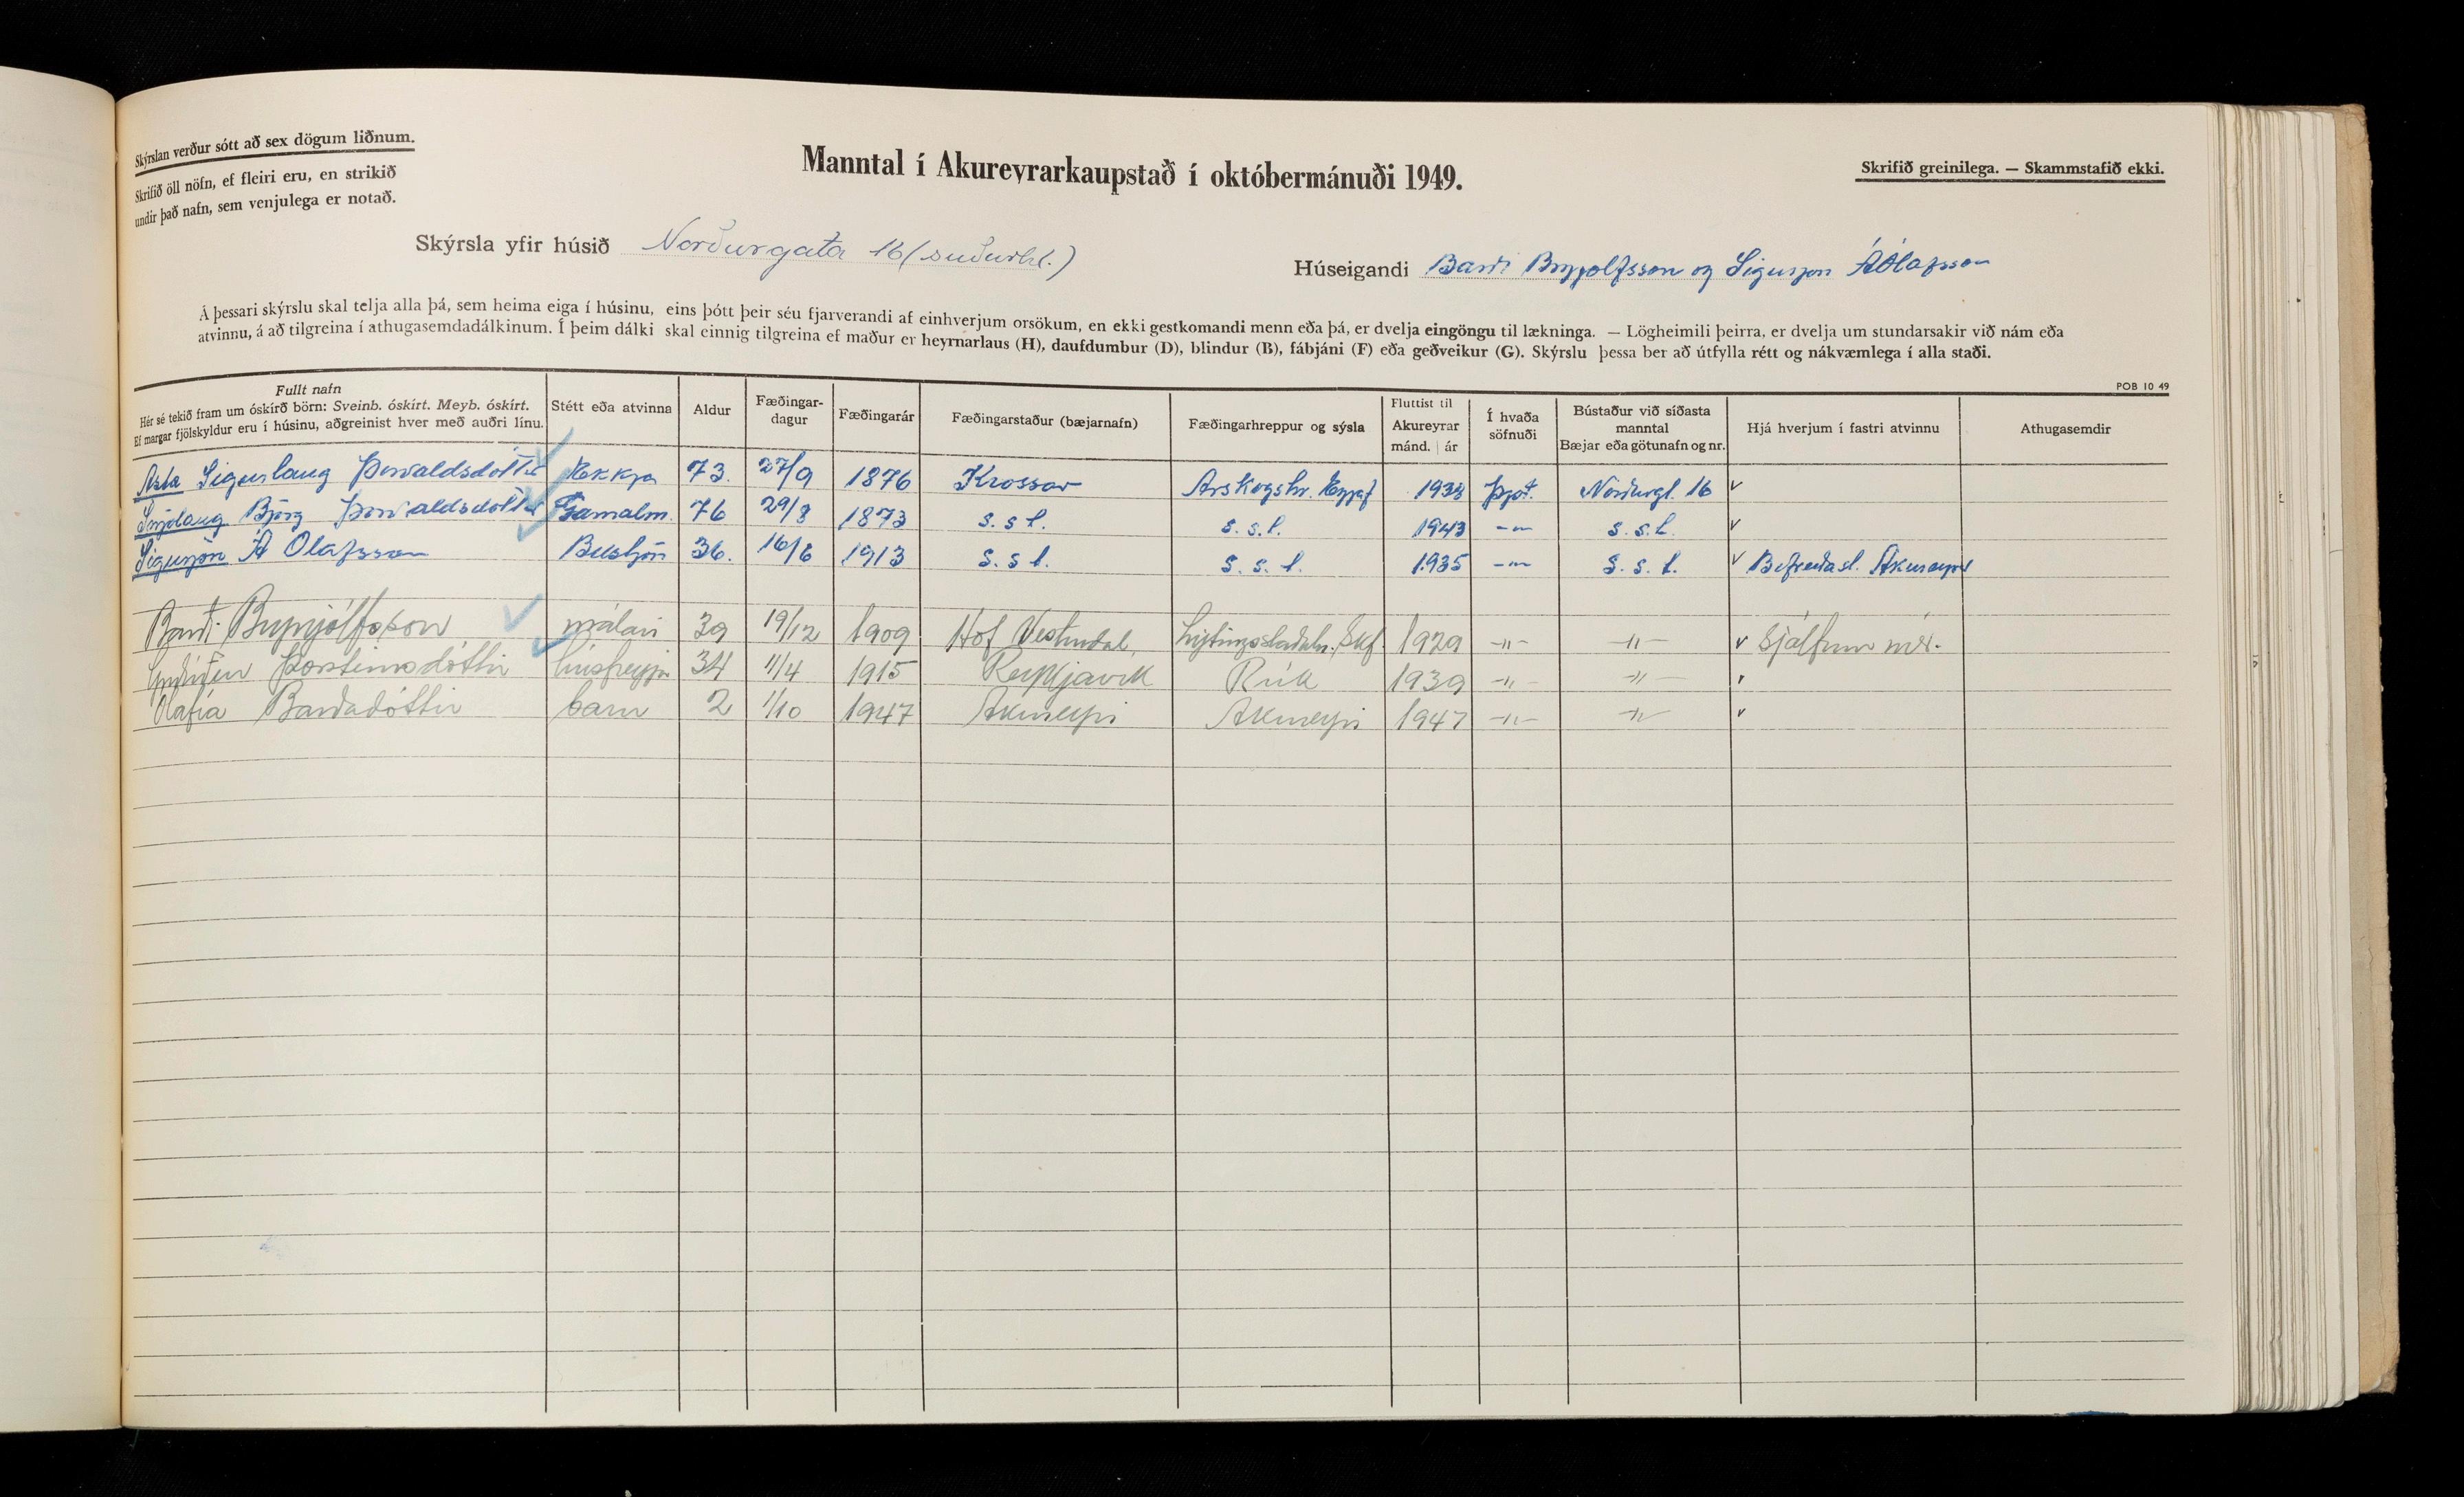 Skýrslan verður sótt að sex dögum liðnum.
Skrifið öll nöfn, ef fleiri eru, en strikið
undir það nafn, sem venjulega er notað.
Manntal í Akureyrarkaupstað í októbermánuði 1949.
Skrifið greinilega. — Skammstafið ekki.
Skýrsla yfir húsið Norðurgata 16 (suðurhl.)
Húseigandi Barði Brynjolfsson og Sigurjon Á Ólafsson
Á þessari skýrslu skal telja alla þá, sem heima eiga í húsinu, eins þótt þeir séu fjarverandi af einhverjum orsökum, en ekki gestkomandi menn eða þá, er dvelja eingöngu til lækninga. — Lögheimili þeirra, er dvelja um stundarsakir við nám eða
atvinnu, á að tilgreina í athugasemdadálkinum. Í þeim dálki skal einnig tilgreina ef maður er heyrnarlaus (H), daufdumbur (D), blindur (B), fábjáni (F) eða geðveikur (G). Skýrslu þessa ber að útfylla rétt og nákvæmlega í alla staði.
POB 10 49
Fullt nafn
Hér sé tekið fram um óskírð börn: Sveinb. óskírt. Meyb. óskírt.
Ef margar fjölskyldur eru í húsinu, aðgreinist hver með auðri línu.
Stétt eða atvinna
Aldur
Fæðingar-
dagur
Fæðingarár
Fæðingarstaður (bæjarnafn)
Fæðingarhreppur og sýsla
Fluttist til
Akureyrar
mánd. | ár
Í hvaða
söfnuði
Bústaður við síðasta
manntal
Bæjar eða götunafn og nr.
Hjá hverjum í fastri atvinnu
Athugasemdir
Asta Sigurlaug Þorvaldsdóttir Ekkja 73. 27/9 1876 Krossar Arskogshr. Eyjaf 1938 Þjóð. Norðurgt. 16 v
Snjolaug Björg Þorvaldsdóttir Gamalm. 76 29/8 1873 s. s t. s. s. t. 1943 -〃- s. s. t. v
Sigurjón Á Olafsson Bilstjóri 36. 16/6 1913 s. s t. s. s. t. 1935 -〃- s. s. t. v Bifreiðast. Akureyrar
Barði Brynjólfsson málari 39 19/12 1909 Hof Vesturdal, Lýtingsstaðahr., Skf. 1929 -〃- -〃- v Sjálfum mér.
Þorsteinsdóttir húsfreyja 34 11/4 1915 Reykjavík Rvík 1939 -〃- -〃- v
Ólafía Barðadóttir barn 2 1/10 1947 Akureyri Akureyri 1947 -〃- -〃- v